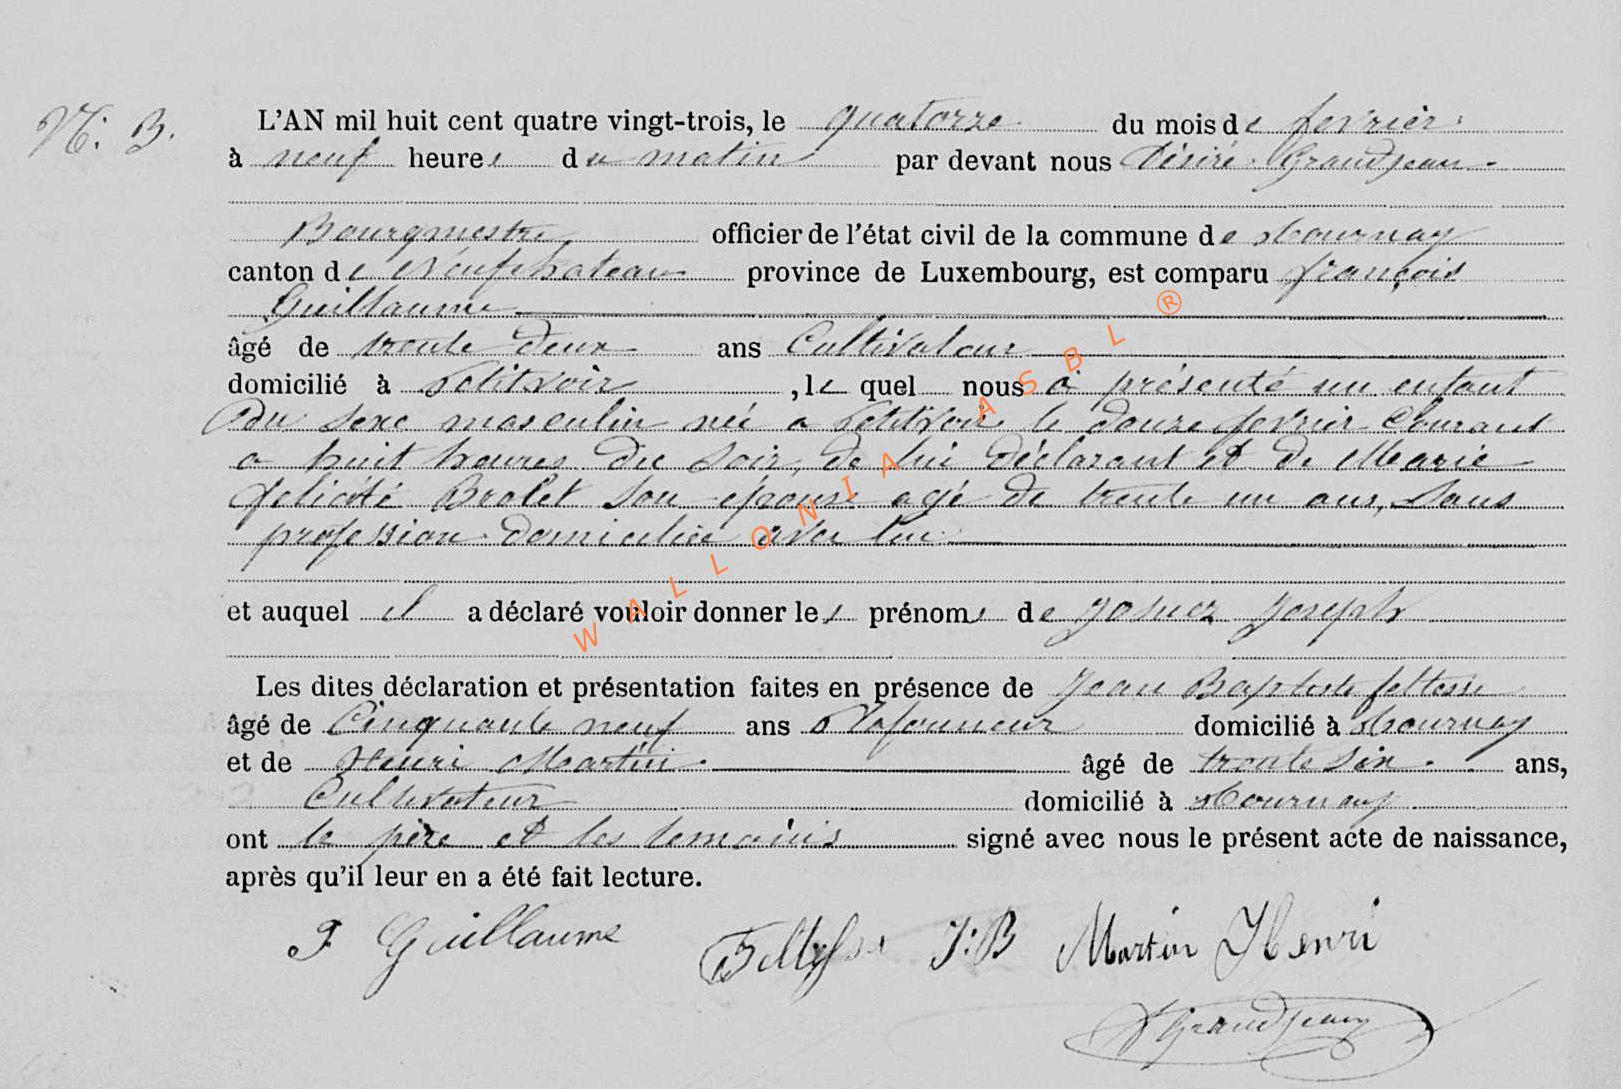 N: 3.
L'AN mil huit cent quatre vingt-trois, le quatorze du mois de fevrier
à neuf heures du matin par devant nous Désiré Grandjean
Bourgmestre officier de l'état civil de la commune de Tournay
canton de Neufchateau province de Luxembourg, est comparu françois
Guillaume
âgé de trente deux ans Cultivateur
domicilié à Petitvoir, le quel nous a présenté un enfant
Du sexe masculin néé a Petitvoir le douze fevrier Courant
a huit heures du soir, de lui déclarant et de Marie
félicité Brolet son épouse agé de trente un ans, sans
profession domiciliée avec lui
et auquel il a déclaré vouloir donner les prénoms de Joseph
Les dites déclaration et présentation faites en présence de Jean Baptiste feltesse
âgé de Cinquante neuf ans Plafonneur domicilié à Tournay
et de Henri Martin âgé de trente six ans,
Cultivateur domicilié à Tournay
ont le père et les temoins signé avec nous le présent acte de naissance,
après qu'il leur en a été fait lecture.
F Guillaume J:B Martin Henri
D Grandjean
WALLONIA ASBL ®